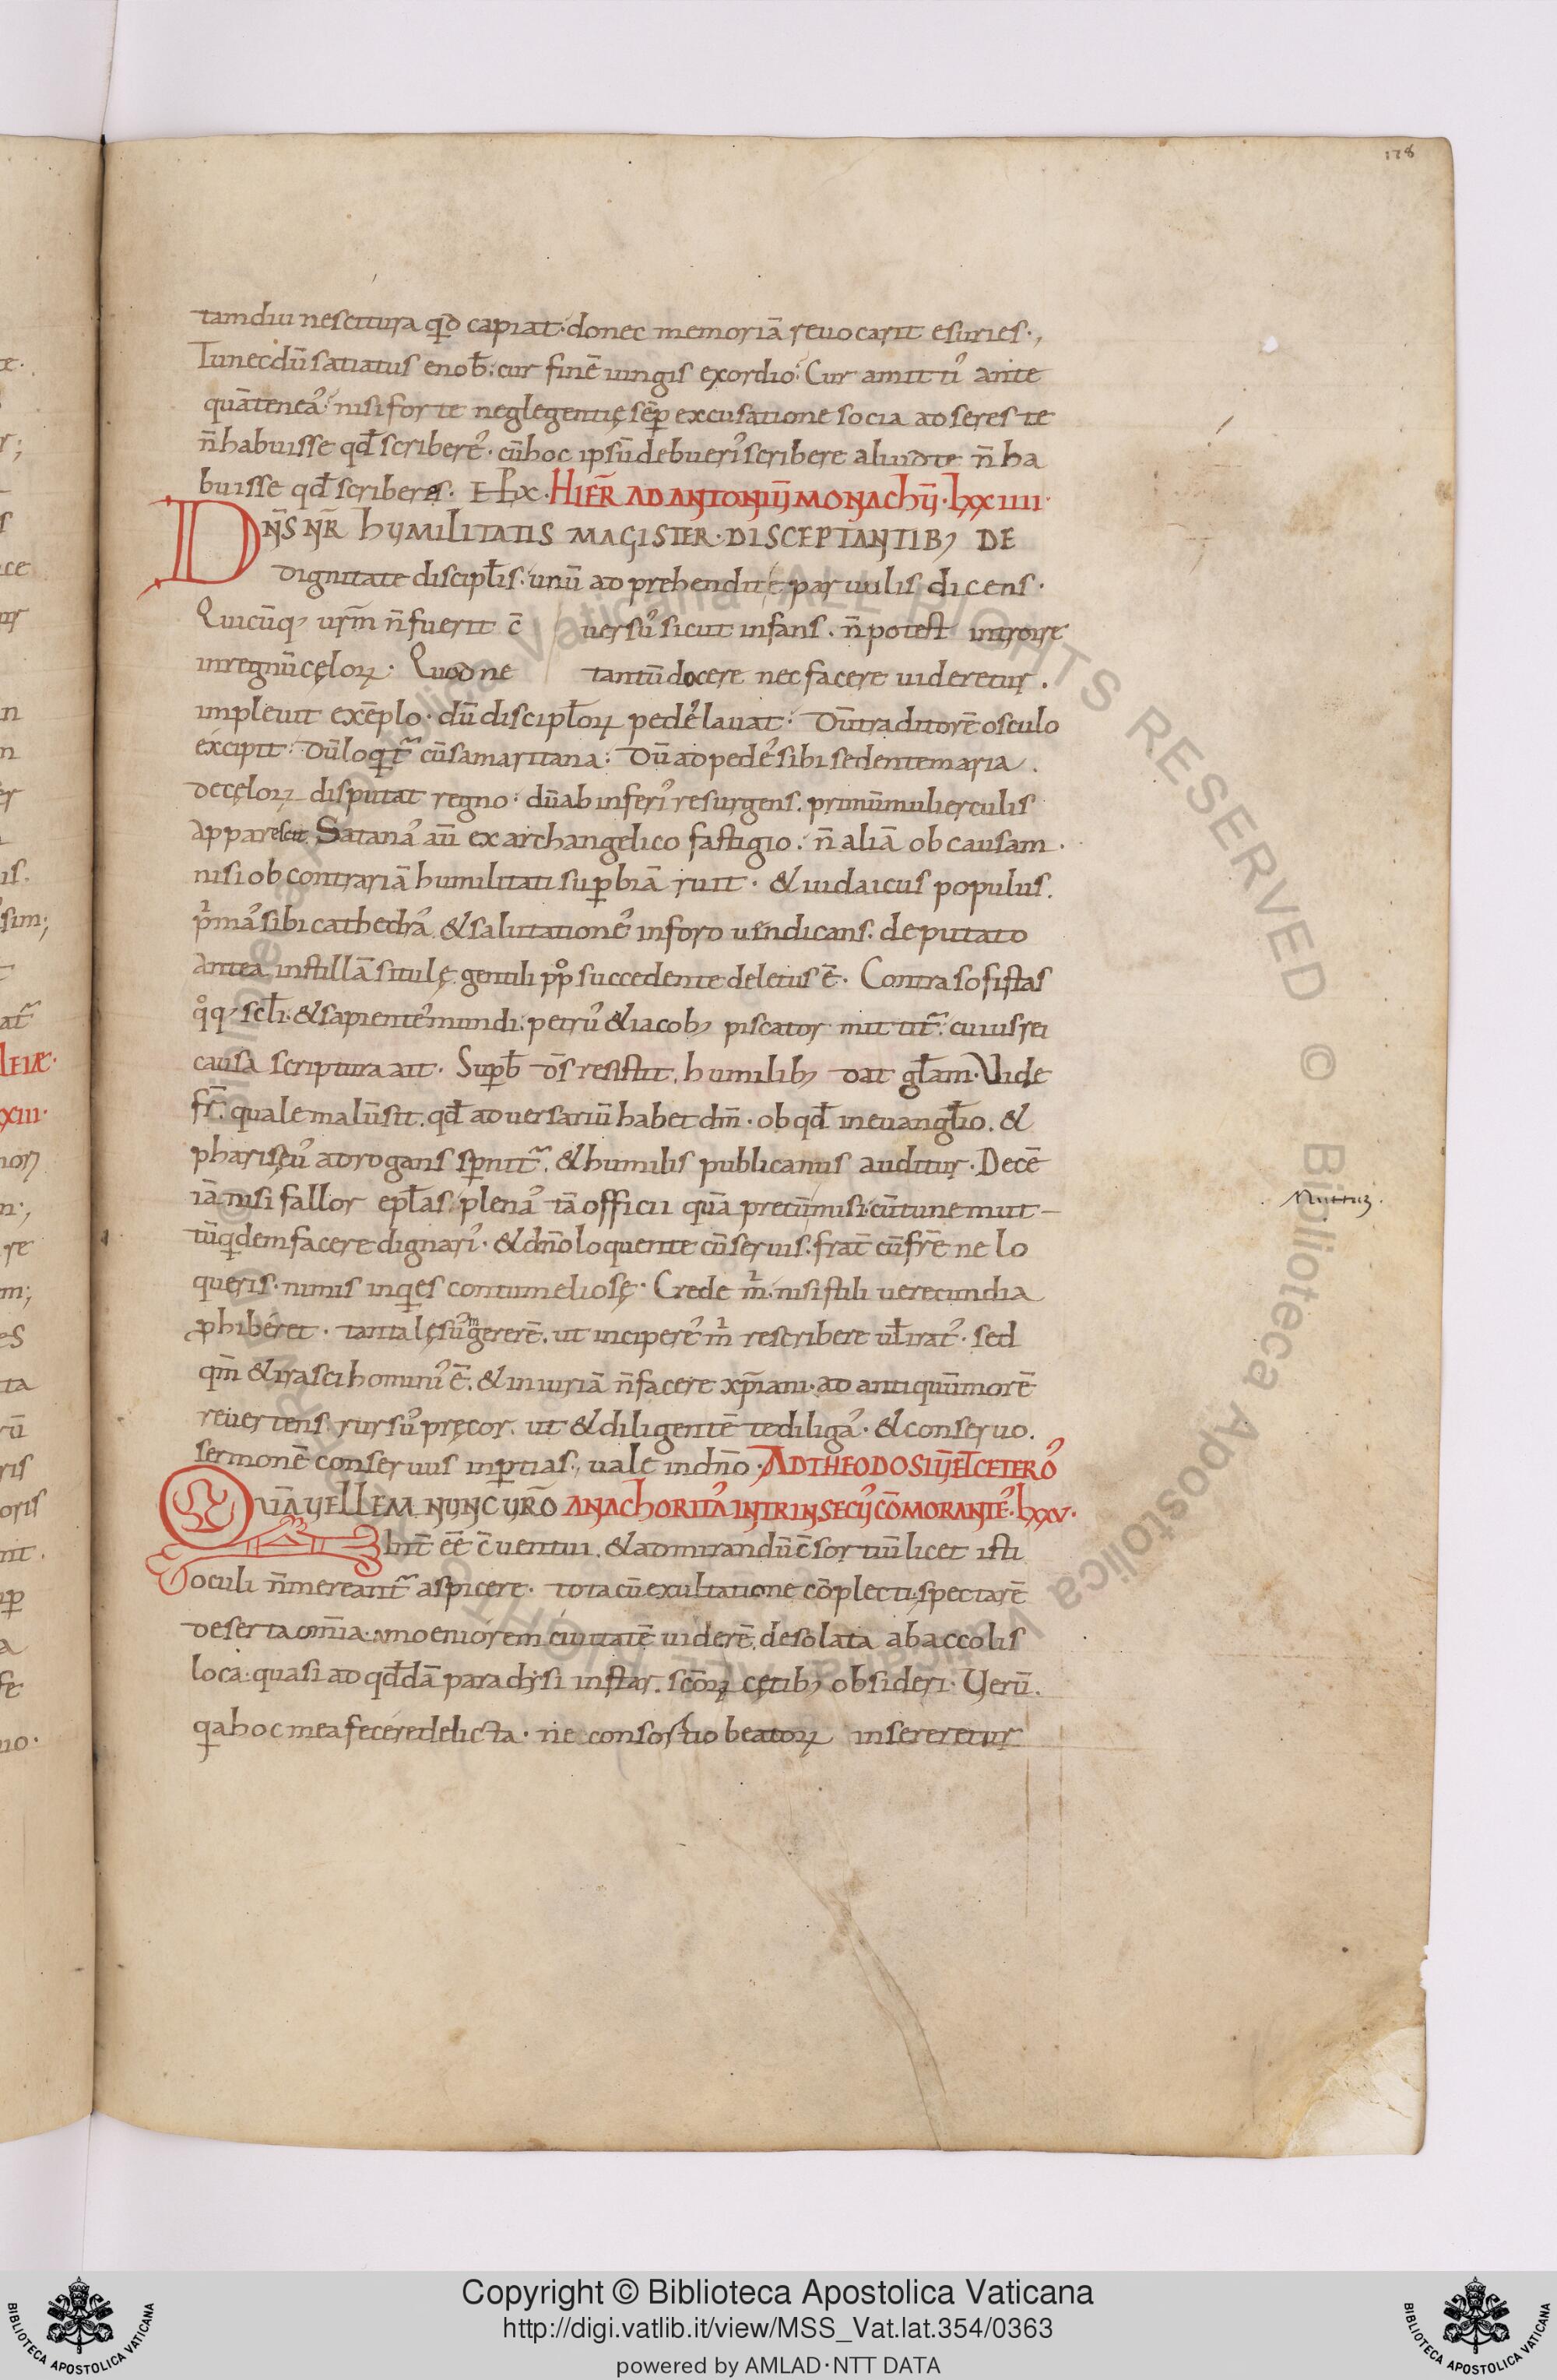 178
tamdiu nescitura qd capiat· donec memoriā reuocarit esuries·,
Tu necdū satiatus enob̄· cur finē iungis exordio· Cur amitti᾽ ante
quā teneā᾽· nisi forte neglegentię sēp excusatione socia adseres te
n̄ habuisse qđ scriberē᾽· cū hoc ipsū debueri᾽ scribere aliud te n̄ ha
buisse qđ scriberes· EPƚ·x· HIER̄ AD ANTONIŪ MONACHŪ· LXXIIII·
DN̄S NR̄ HUMILITATIS MAGISTER· DISCEPTANTIB; DE
dignitate discipƚis· unū adprehendit ę paruulis dicens·
Quicūq; urm̄ n̄ fuerit c̄ uersu᾽ sicut infans· n̄ potest introire
in regnū cęloꝝ· Quod ne tantū docere nec facere uideretur·
impleuit exēplo· dū discipƚoꝝ pede᾽ lauat· dū traditorē osculo
excipit· dū loqt̄ cū samaritana· dū ad pede᾽ sibi sedente maria·
de cęloꝝ disputat regno· dū ab inferi᾽ resurgens· primū mulierculis
apparescit Satana᾽ aū ex archangelico fastigio· n̄ aliā ob causam·
nisi ob contrariā humilitati supbiā ruit· & iudaicus populus·
pma᾽ sibi cathedra᾽ & salutatione᾽ in foro uendicans· deputato
antea in stillā situlę gentili ppo succedente deletus ē· Contra sofistas
qoq; scƚi· & sapiente᾽ mundi· petru᾽ & iacob; piscator mittit̄· cuius rei
causa scriptura ait· Supb̄ d̄s resistit· humilib; dat gƚam· Vide
fr̄· quale malū sit· qđ aduersariū habet dm̄· ob qđ in euangƚio· &
phariseu᾽ adrogans spnit̄· & humilis publicanus auditur· Decē
iā nisi fallor epƚas· plena᾽ tā officii quā pretū misi· cū tu ne mut–
tū qdem facere dignari᾽· & dn̄o loquente cū seruis· frat̄ cū fr̄e ne lo
queris· nimis inqes contumeliosę· Crede m̄· nisi stili uerecundia
phiberet· tanta lęsu᾽ gererē· ut incipere᾽ m̄ rescribere uƚ irat᾽· sed
qm̄ & irasci homini᾽ ē· & iniuriā n̄ facere xp̄iani· ad antiquū morē
reuertens· rursu᾽ pręcor· ut & diligentē te diliga᾽· & conseruo·
sermonē conseruus inptias·, uale in dn̄o· AD THEODOSIŪ ET CETERO᾽
QUĀ UELLEM NUNC URŌ ANACHORITA᾽ INTRINSECU᾽ CŌMORANTE᾽· LXXV·
Int̄ ēē c̄uentui· & admirandū c̄sortiū licet isti
oculi n̄ mereant̄ aspicere· tota cū exultatione cōplecti· spectarē
deserta· om̄ia amoeniorem ciuitatē uiderē· desolata ab accolis
loca· quasi ad qđdā paradysi instar· sc̄oꝝ cętib; obsideri· Verū·
qa hoc mea fecere delicta· ne consortio beatoꝝ insereretur
Copyright © Biblioteca Apostolica Vaticana
http://digi.vatlib.it/view/MSS_Vat.lat.354/0363
powered by AMLAD·NTT DATA
BIBLIOTECA APOSTOLICA VATICANA
BIBLIOTECA APOSTOLICA VATICANA